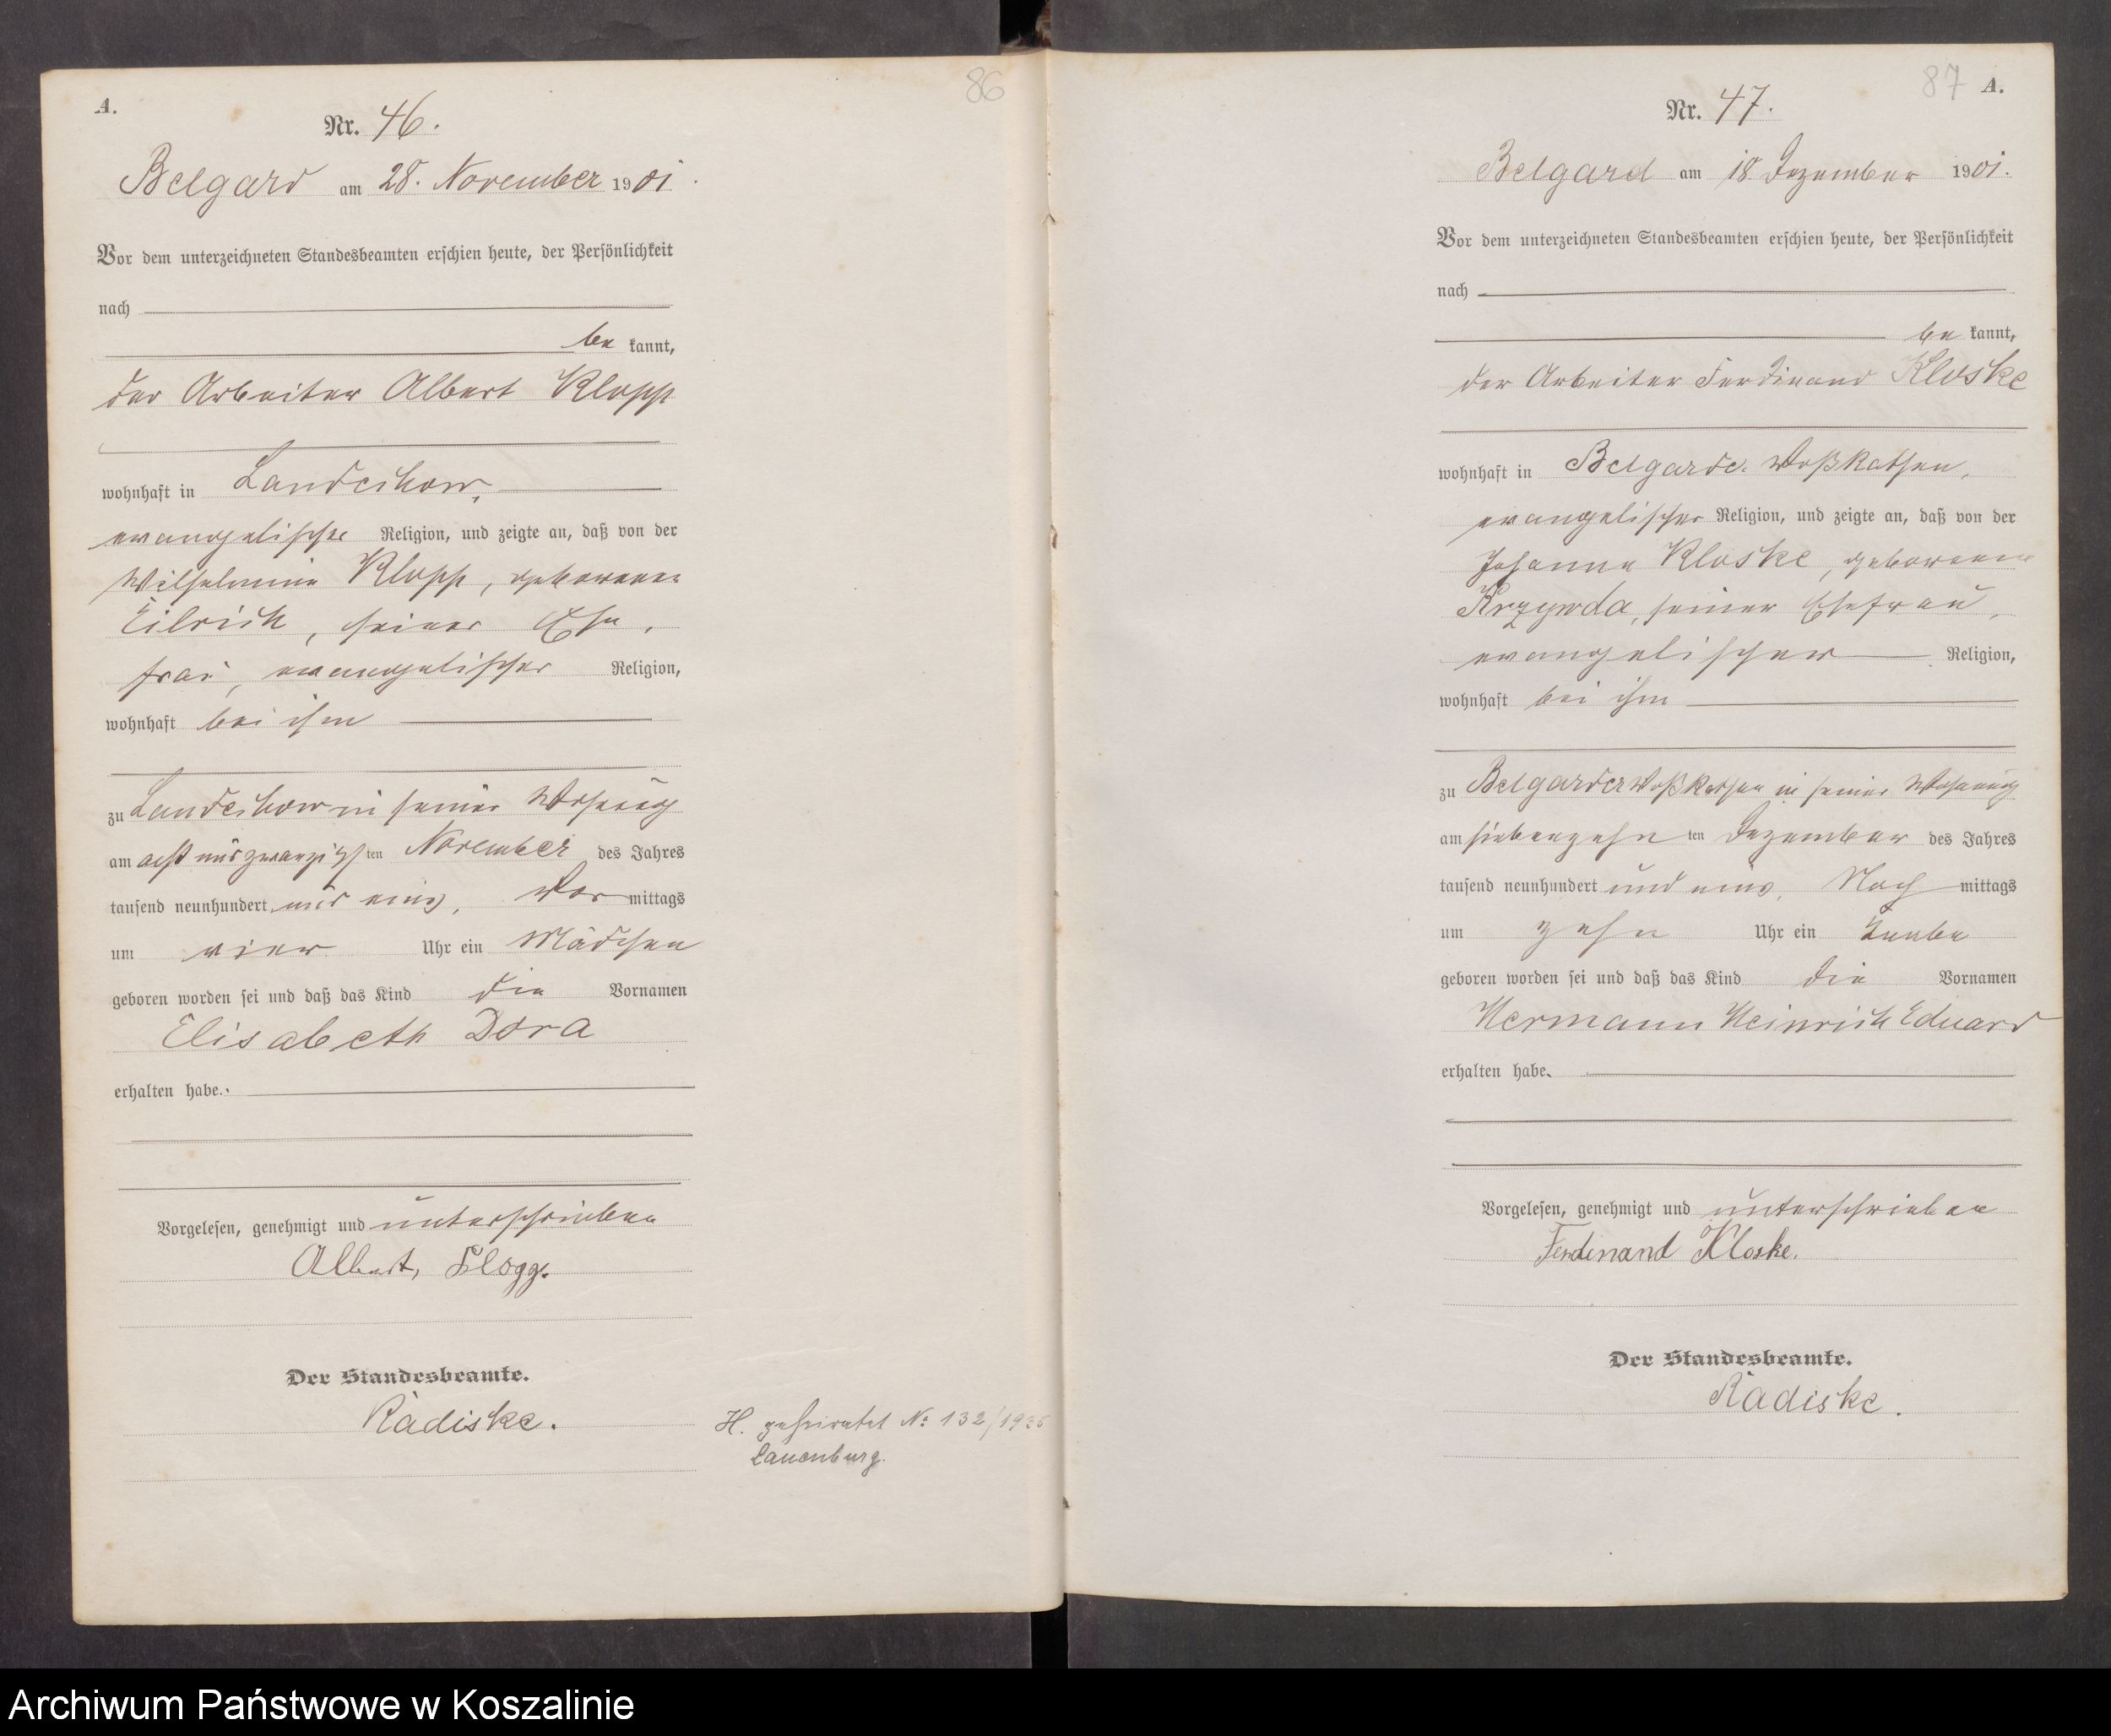 86
A.
Nr. 46.
Belgard am 28. November 1901.
Vor dem unterzeichneten Standesbeamten erschien heute, der Persönlichkeit
nach
be kannt,
der Arbeiter Albert Klopp
wohnhaft in Landechow,
evangelischer Religion, und zeigte an, daß von der
Wilhelmine Klopp, geborenen
Eilrich, seiner Ehe,
frau, evangelischer Religion,
wohnhaft bei ihm
zu Landechow in seiner Wohnung
am acht und zwanzigsten November des Jahres
tausend neunhundert und eins, Vor mittags
um vier Uhr ein Mädchen
geboren worden sei und daß das Kind die Vornamen
Elisabeth Dora
erhalten habe.
Vorgelesen, genehmigt und unterschrieben
Albert, Klopp.
Der Standesbeamte.
Radiske.
H. geheiratet No 132/1935
Lauenburg.
87 A.
Nr. 47.
Belgard am 18 Dezember 1901.
Vor dem unterzeichneten Standesbeamten erschien heute, der Persönlichkeit
nach
be kannt,
der Arbeiter Ferdinand Kloske
wohnhaft in Belgarde. Voßkathen,
evangelischer Religion, und zeigte an, daß von der
Johanna Kloske, geborenen
Krzywda, seiner Ehefrau,
evangelischer Religion,
wohnhaft bei ihm
zu Belgarder Voßkathen in seiner Wohnung
am siebenzehn ten Dezember des Jahres
tausend neunhundert und eins, Nach mittags
um zehn Uhr ein Knabe
geboren worden sei und daß das Kind die Vornamen
Hermann Heinrich Eduard
erhalten habe.
Vorgelesen, genehmigt und unterschrieben
Ferdinand Kloske.
Der Standesbeamte.
Radiske.
Archiwum Państwowe w Koszalinie